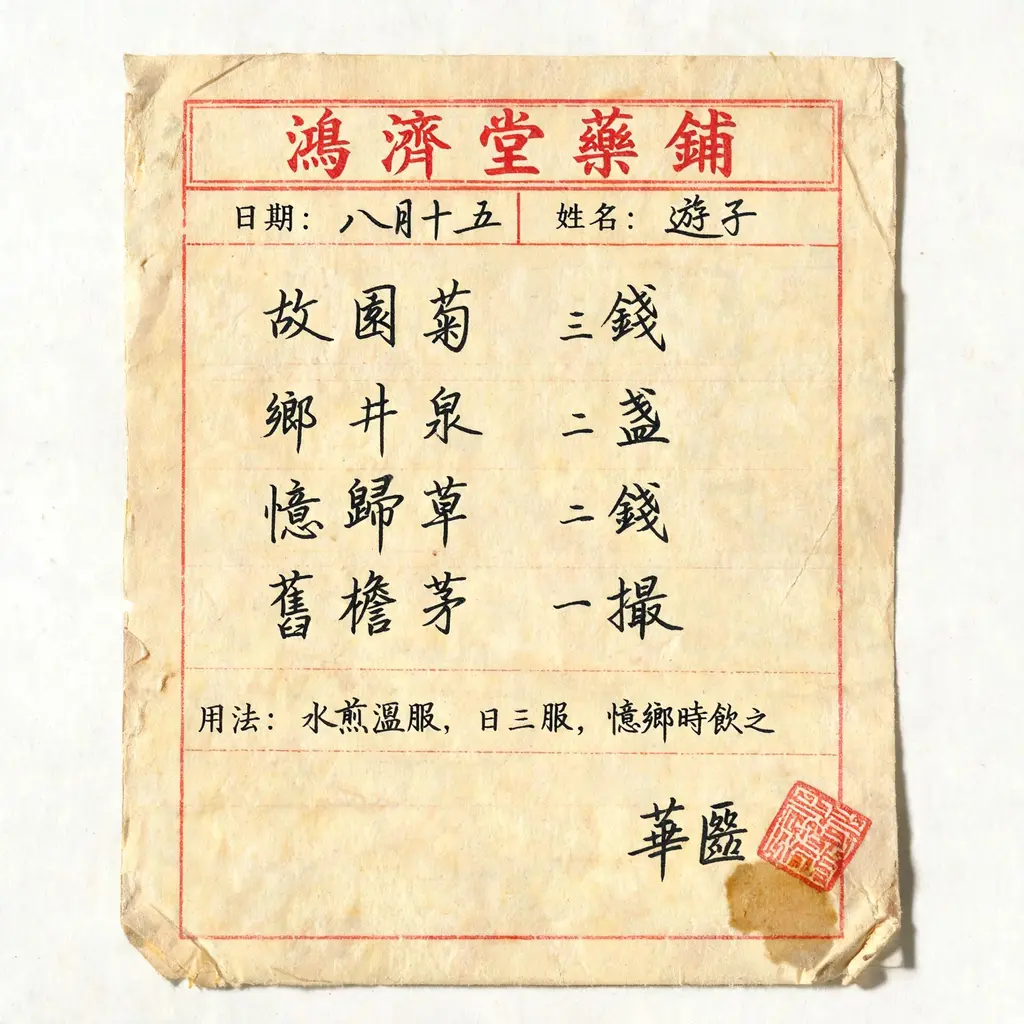 鴻濟堂藥鋪
日期：八月十五 姓名：遊子
故園菊 三錢
鄉井泉 二盞
憶歸草 二錢
舊檐茅 一撮
用法：水煎溫服，日三服，憶鄉時飲之
華醫